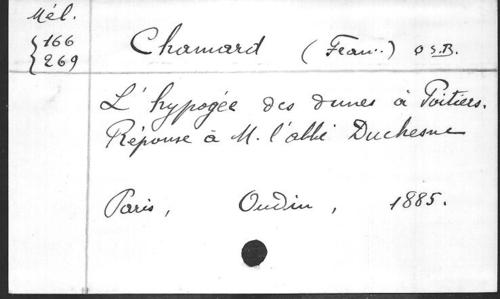 Mél.
166
269
Chamard (Fran..) O.S.B.
L'hypogée des dunes à Poitiers.
Réponse à M. l'abbé Duchesne
Paris, Oudin, 1885.